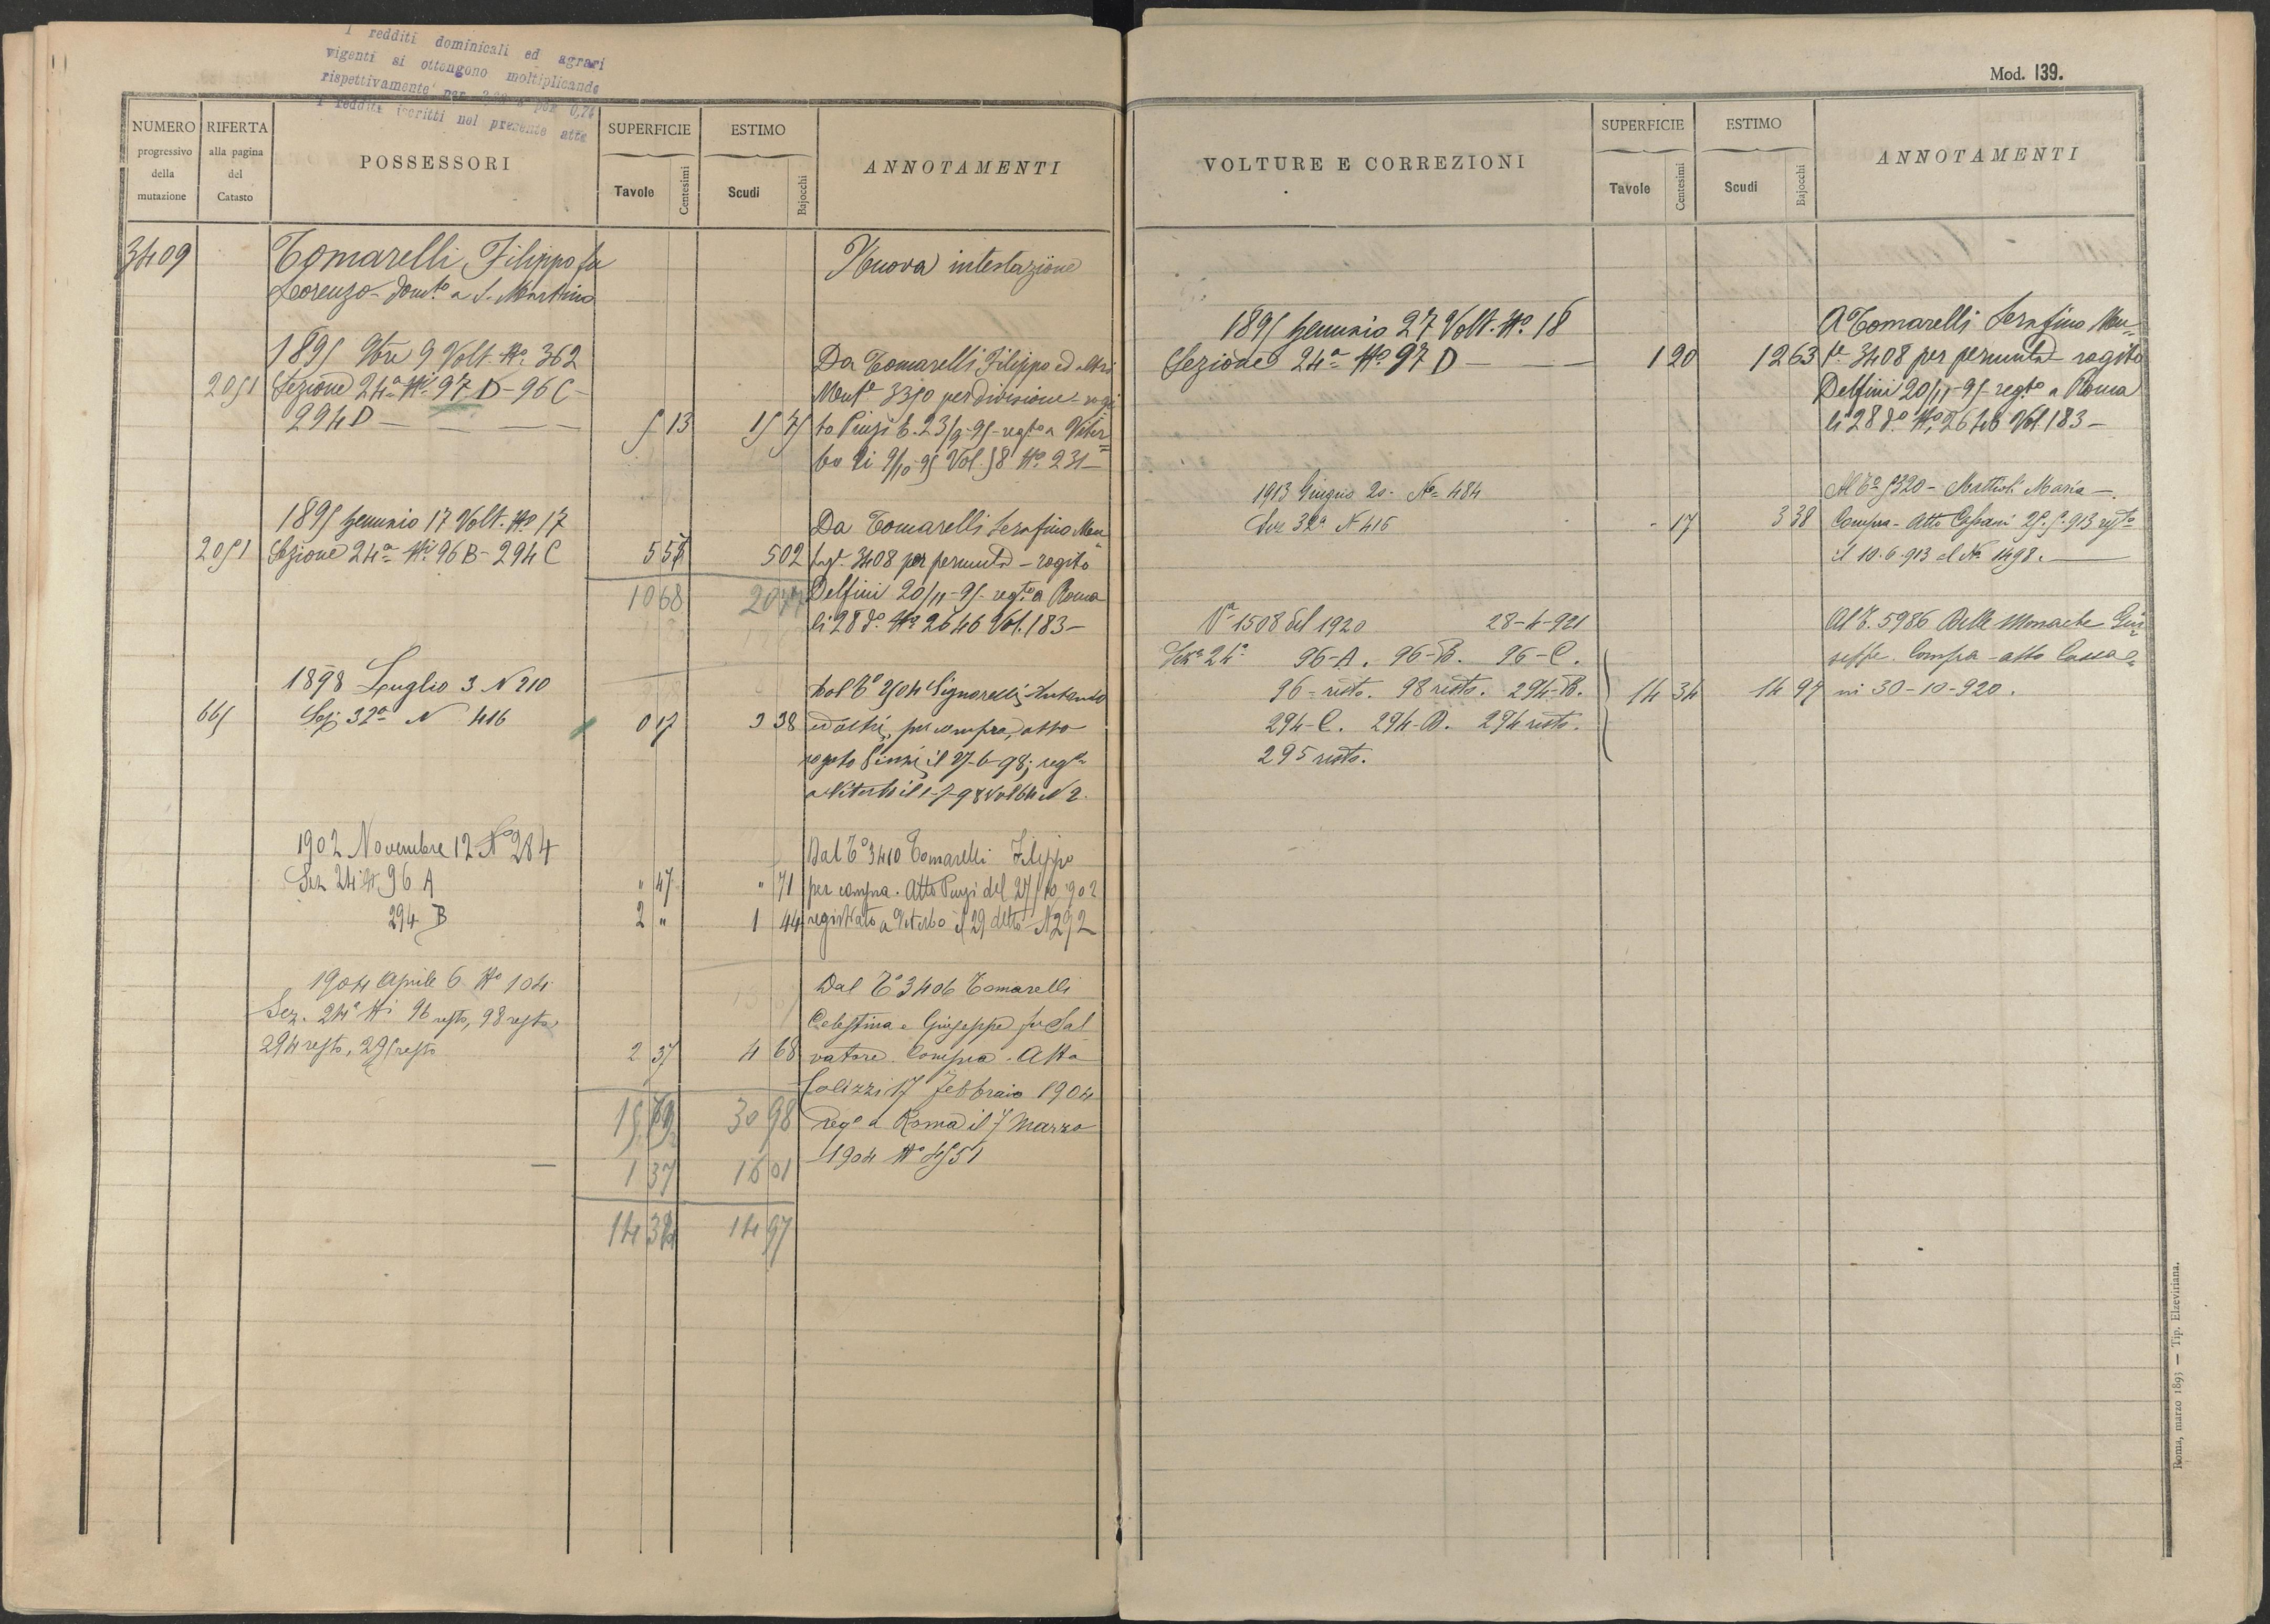 I redditi dominicali ed agrari
vigenti si ottengono moltiplicando
rispettivamente per
i redditi iscritti nel presente atto
NUMERO progressivo della mutazione
RIFERTA alla pagina del Catasto
POSSESSORI
SUPERFICIE
Tavole Centesimi
ESTIMO
Scudi Bajocchi
ANNOTAMENTI
3409 Tomarelli Filippo fu Nuova intestazione
Lorenzo domto a S. Martino
1895 9bre 9 Volt. No. 362 Da Tomarelli Filippo ed altri
2051 Sezione 24a Ni 97 D - 96 C - 3350 per divisione - rogi
294 D 5 13 15 75 to Pinzi 23/9-95 - regto a Viter
bo li 9/10-95 Vol. 58 No. 231 -
1895 Gennaio 17 Volt. No 17 Da Tomarelli Serafino
2051 Sezione 24a Ni 96 B - 294 C 5 55 5 02 3408 per permuta - rogito
10 68 20 77 Delfini 20/11-95 - regto a Roma
li 28 do No 2646 Vol. 183 -
1898 Luglio 3 N 210 Dal To 2504 Signorelli Antonio
665 Sez 32a N 416 0 17 3 38 ed altri, per compra, atto
rogato Pinzi il 27-6-98; regto
a Viterbo il 1-7-98 Vol 64 N 2.
1902 Novembre 12 No 284 Dal To 3410 Tomarelli Filippo
Sez 24a N 96 A " 47 " 71 per compra. Atto Pinzi del 27/10/902
294 B 2 " 1 44 registrato a Viterbo il 29 detto N 292
1904 Aprile 6 No 104 Dal To 3406 Tomarelli
Sez. 24a Ni 96 resto, 98 resto, Celestina e Giuseppe fu Sal
294 resto, 295 resto 2 37 4 68 vatore. Compra. Atto
17 Febbraio 1904
15 30 98 Rego a Roma il 7 Marzo
1 37 16 01 1904 No
14 34 14 97
Mod. 139.
VOLTURE E CORREZIONI
SUPERFICIE
Tavole Centesimi
ESTIMO
Scudi Bajocchi
ANNOTAMENTI
1895 Gennaio 27 Volt. No. 18 A Tomarelli Serafino
Sezione 24a No 97 D 1 20 12 63 3408 per permuta rogito
Delfini 20/11-95 - regto a Roma
li 28 do. No. 2646 Vol. 183 -
1913 Giugno 20 - No = 484 Al To 5320 - Mattioli Maria -
Sez 32a N 416 - 17 3 38 Compra - Atto 25.5.913 regto
il 10.6.913 al No 1498.
Va 1508 del 1920 28-4-921 Al T. 5986 Delle Monache Giu
Seza 24a 96-A. 96-B. 96-C. seppe. Compra - atto
96 = resto. 98 resto. 294-B. 14 34 14 97 ni 30-10-920.
294-C. 294-D. 294 resto.
295 resto.
Roma, marzo 1893 — Tip. Elzeviriana.